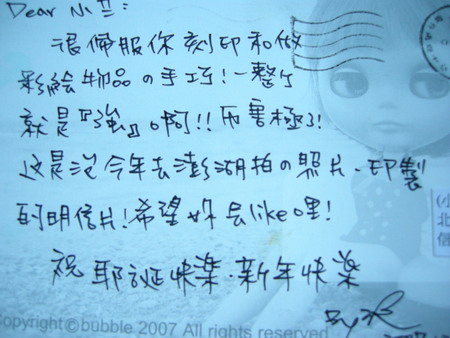 Dear 小芝:
很佩服你刻印和做
彩絵物品の手工巧!一整个
就是『強』の啊!!厉害極了!
这是没今年去澎湖拍の照片、印製
的明信片!希望妳会like哩!
祝 耶誕快樂.新年快樂
By
Copyright©bubble 2007 All rights reserved
(小
北
信